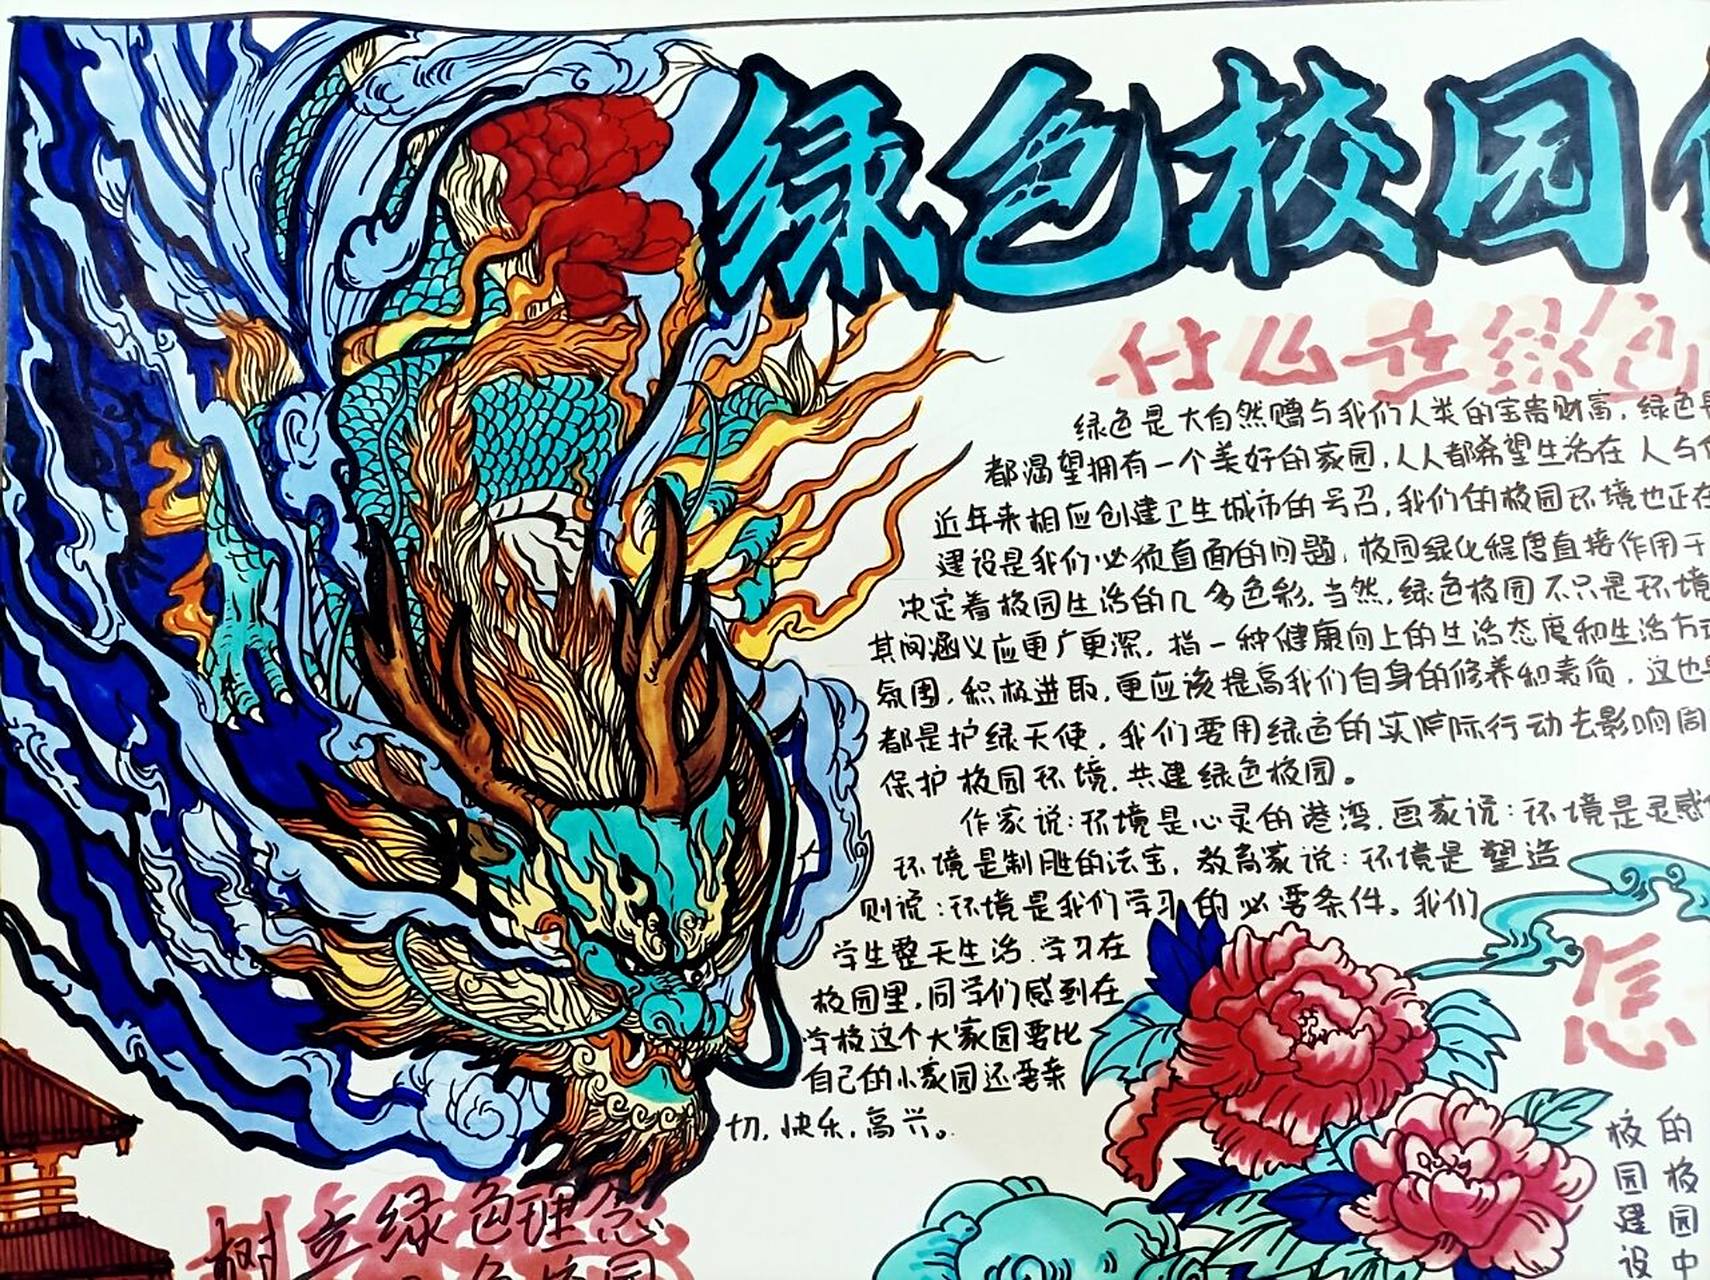 绿色校园
什么是绿色
绿色是大自然赠与我们人类的宝贵财富，绿色是
都渴望拥有一个美好的家园，人人都希望生活在人与
近年来相应创建卫生城市的号召，我们的校园环境也正在
建设是我们必须直面的问题，校园绿化程度直接作用于
决定着校园生活的几多色彩，当然，绿色校园不只是环境
其间涵义应更广更深，指一种健康向上的生活态度和生活方
氛围，积极进取，更应该提高我们自身的修养和素质，这也是
都是护绿天使，我们要用绿色的实际行动去影响周
保护校园环境，共建绿色校园。
作家说：环境是心灵的港湾，画家说：环境是灵感
环境是制胜的法宝，教育家说：环境是塑造
则说：环境是我们学习的必要条件。我们
学生整天生活，学习在
校园里，同学们感到在
学校这个大家园要比
自己的小家园还要亲
切，快乐，高兴。
怎
的校园中
校园建设
树立绿色理念